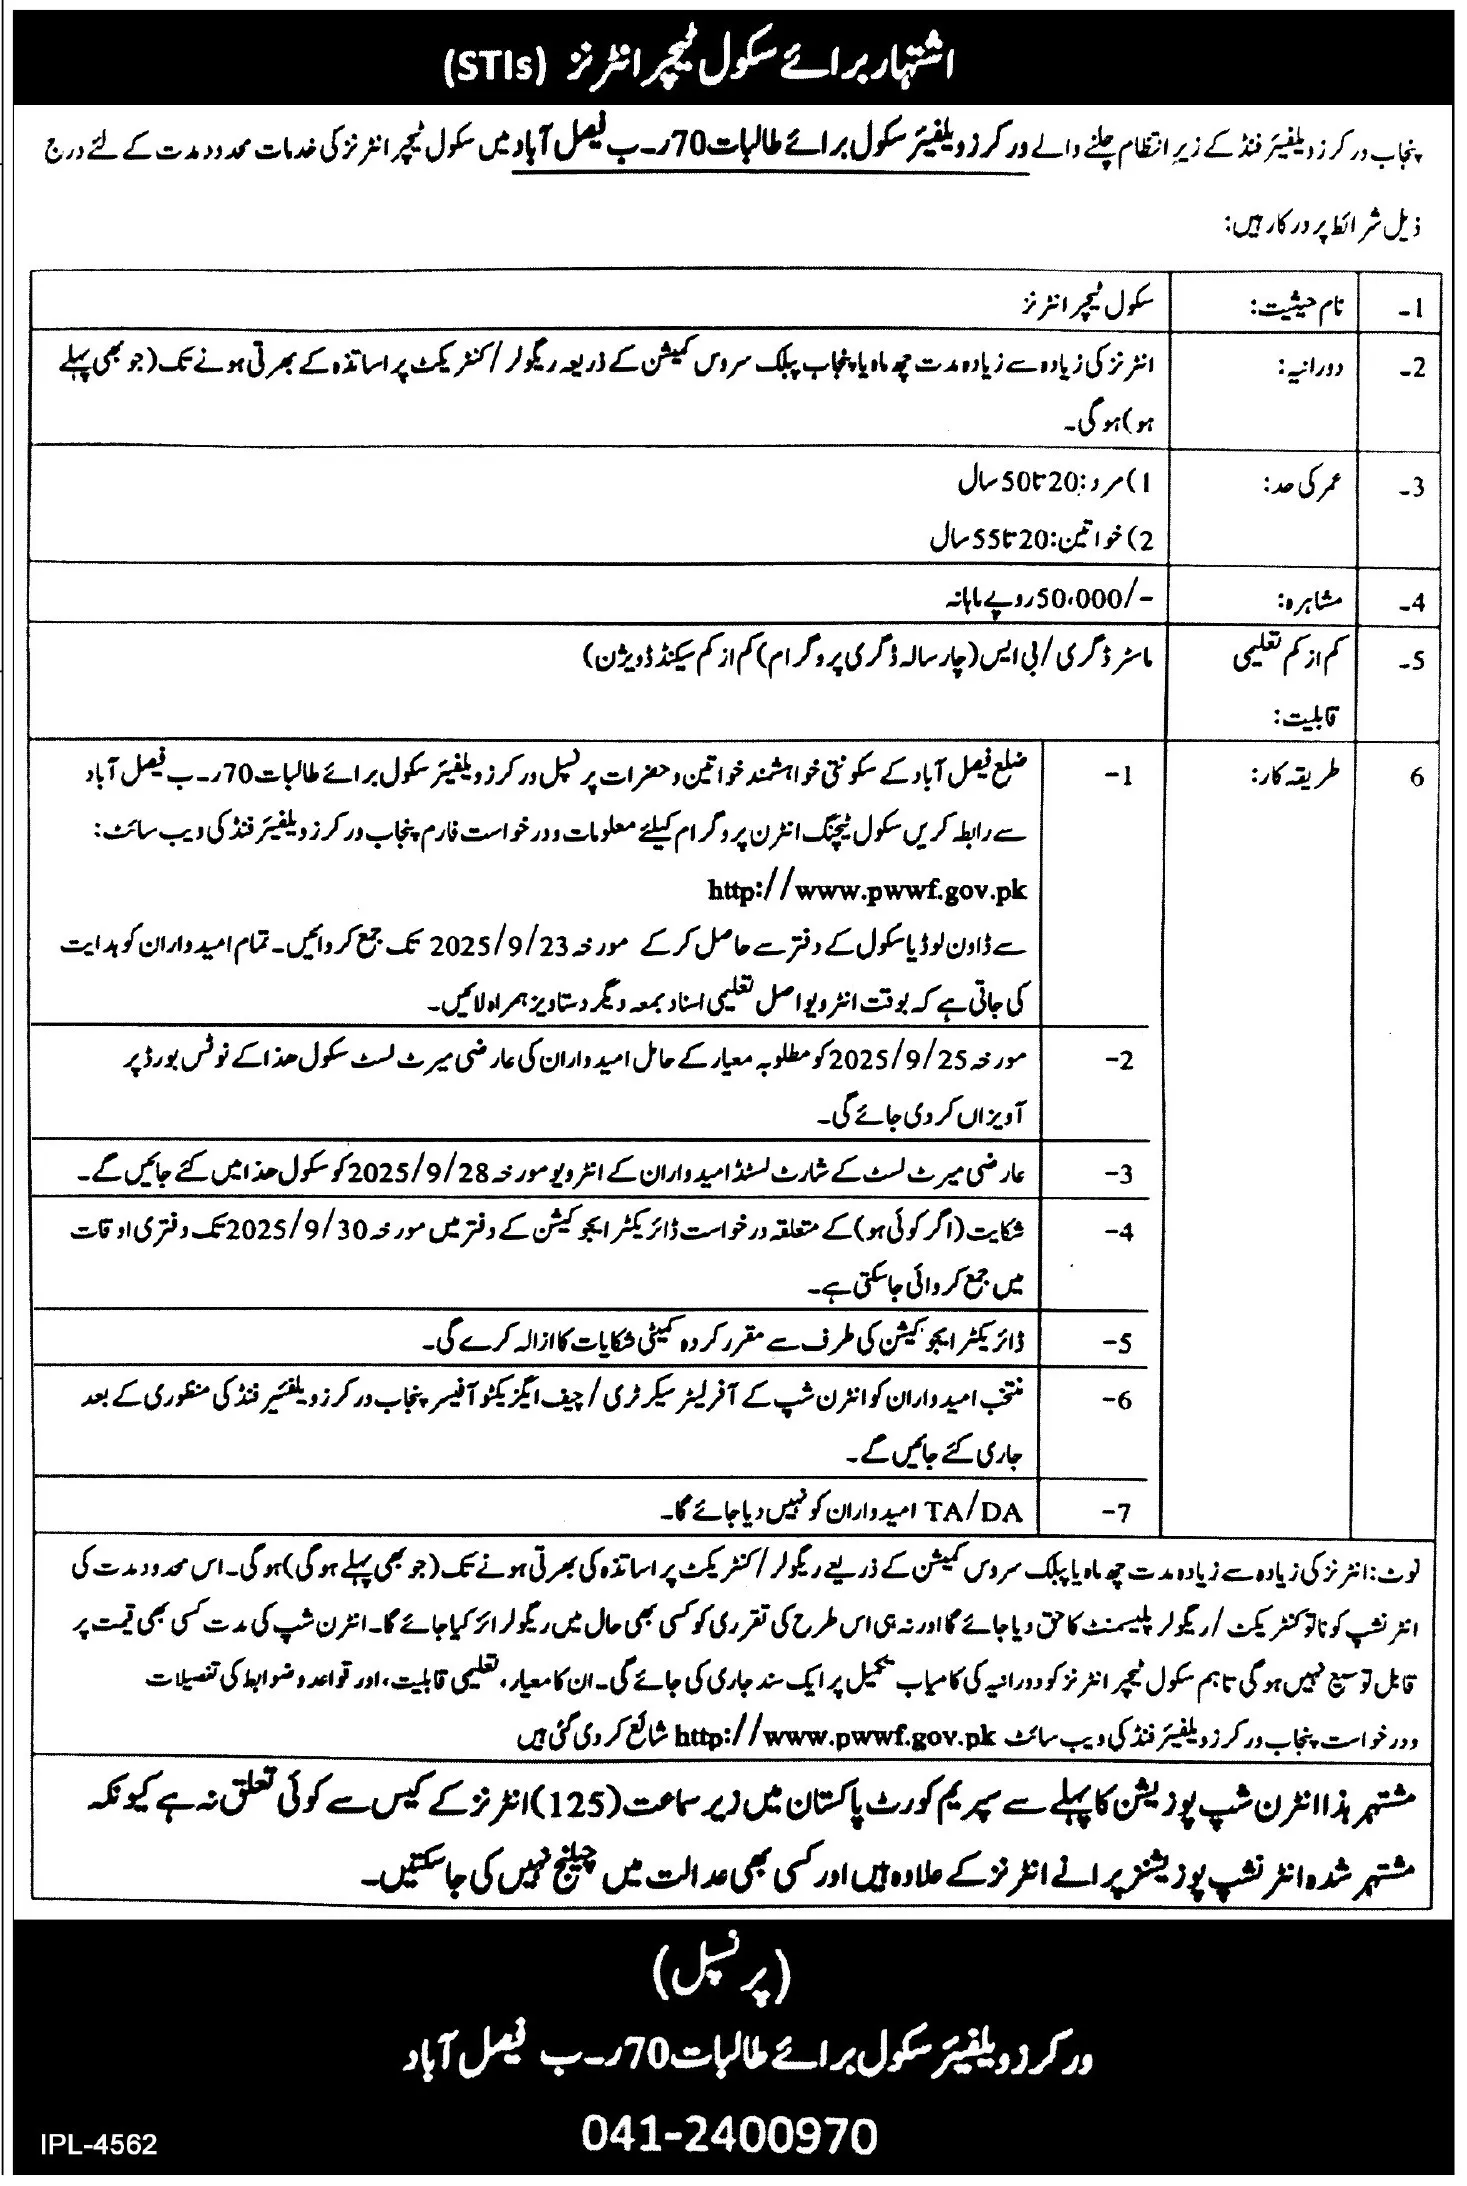 اشتہار برائے سکول ٹیچر انٹرنز (STIs)
پنجاب ورکرز ویلفیئر فنڈ کے زیر انتظام چلنے والے ورکرز ویلفیئر سکول برائے طالبات 70 ر۔ب فیصل آباد میں سکول ٹیچر انٹرنز کی خدمات محدود مدت کے لئے درج
ذیل شرائط پر درکار ہیں:
1۔ نام حیثیت: سکول ٹیچر انٹرنز
2۔ دورانیہ: انٹرنز کی زیادہ سے زیادہ مدت چھ ماہ یا پنجاب پبلک سروس کمیشن کے ذریعہ ریگولر/کنٹریکٹ پر اساتذہ کے بھرتی ہونے تک (جو بھی پہلے
ہو) ہوگی۔
3۔ عمر کی حد: 1) مرد: 20 تا 50 سال
2) خواتین: 20 تا 55 سال
4۔ مشاہرہ: 50,000/- روپے ماہانہ
5۔ کم از کم تعلیمی ماسٹر ڈگری/بی ایس (چار سالہ ڈگری پروگرام) کم از کم سیکنڈ ڈویژن)
قابلیت:
6 طریقہ کار: 1- ضلع فیصل آباد کے سکونتی خواہشمند خواتین و حضرات پرنسپل ورکرز ویلفیئر سکول برائے طالبات 70 ر۔ب فیصل آباد
سے رابطہ کریں سکول ٹیچنگ انٹرن پروگرام کیلئے معلومات و درخواست فارم پنجاب ورکرز ویلفیئر فنڈ کی ویب سائٹ:
http://www.pwwf.gov.pk
سے ڈاون لوڈ یا سکول کے دفتر سے حاصل کر کے مورخہ 2025/9/23 تک جمع کروائیں۔ تمام امیدواران کو ہدایت
کی جاتی ہے کہ بوقت انٹرویو اصل تعلیمی اسناد بمعہ دیگر دستاویز ہمراہ لائیں۔
2- مورخہ 2025/9/25 کو مطلوبہ معیار کے حامل امیدواران کی عارضی میرٹ لسٹ سکول ھذا کے نوٹس بورڈ پر
آویزاں کر دی جائے گی۔
3- عارضی میرٹ لسٹ کے شارٹ لسٹڈ امیدواران کے انٹرویو مورخہ 2025/9/28 کو سکول ھذا میں کئے جائیں گے۔
4- شکایت (اگر کوئی ہو) کے متعلقہ درخواست ڈائریکٹر ایجوکیشن کے دفتر میں مورخہ 2025/9/30 تک دفتری اوقات
میں جمع کروائی جا سکتی ہے۔
5- ڈائریکٹر ایجوکیشن کی طرف سے مقرر کردہ کمیٹی شکایات کا ازالہ کرے گی۔
6- منتخب امیدواران کو انٹرن شپ کے آفر لیٹر سیکرٹری/چیف ایگزیکٹو آفیسر پنجاب ورکرز ویلفیئر فنڈ کی منظوری کے بعد
جاری کئے جائیں گے۔
7- TA/DA امیدواران کو نہیں دیا جائے گا۔
نوٹ: انٹرنز کی زیادہ سے زیادہ مدت چھ ماہ یا پبلک سروس کمیشن کے ذریعے ریگولر/کنٹریکٹ پر اساتذہ کی بھرتی ہونے تک (جو بھی پہلے ہوگی) ہوگی۔ اس محدود مدت کی
انٹرنشپ کو نا تو کنٹریکٹ/ریگولر پلیسمنٹ کا حق دیا جائے گا اور نہ ہی اس طرح کی تقرری کو کسی بھی حال میں ریگولرائز کیا جائے گا۔ انٹرن شپ کی مدت کسی بھی قیمت پر
قابل توسیع نہیں ہوگی تاہم سکول ٹیچر انٹرنز کو دورانیہ کی کامیاب تکمیل پر ایک سند جاری کی جائے گی۔ ان کا معیار، تعلیمی قابلیت، اور قواعد و ضوابط کی تفصیلات
و درخواست پنجاب ورکرز ویلفیئر فنڈ کی ویب سائٹ http://www.pwwf.gov.pk شائع کر دی گئی ہیں
مشتہر ہذا انٹرن شپ پوزیشن کا پہلے سے سپریم کورٹ پاکستان میں زیر سماعت (125) انٹرنز کے کیس سے کوئی تعلق نہ ہے کیونکہ
مشتہر شدہ انٹرنشپ پوزیشنز پرانے انٹرنز کے علاوہ ہیں اور کسی بھی عدالت میں چیلنج نہیں کی جا سکتیں۔
(پرنسپل)
ورکرز ویلفیئر سکول برائے طالبات 70 ر۔ب فیصل آباد
041-2400970
IPL-4562